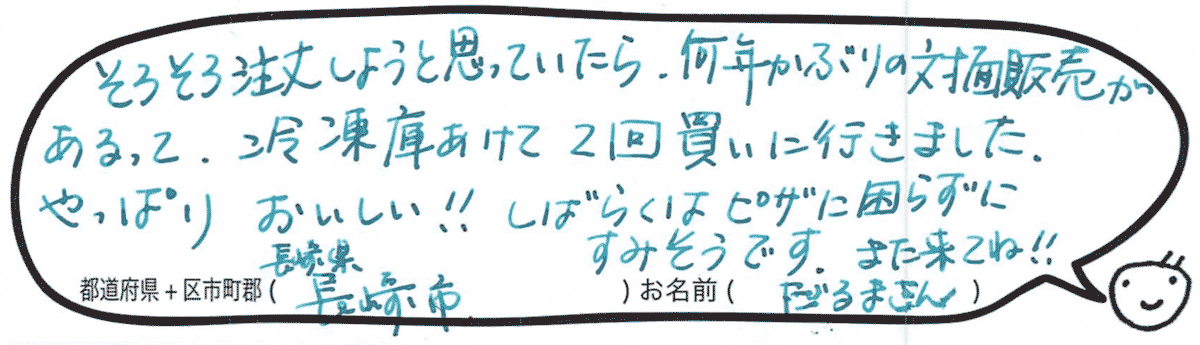 そろそろ注文しようと思っていたら、何年かぶりの対面販売が
あるって、冷凍庫あけて2回買いに行きました。
やっぱり おいしい!! しばらくは ピザに困らずに
すみそうです。また来てね!!
都道府県+区市町郡(長崎県 長崎市)お名前(だるまさん)